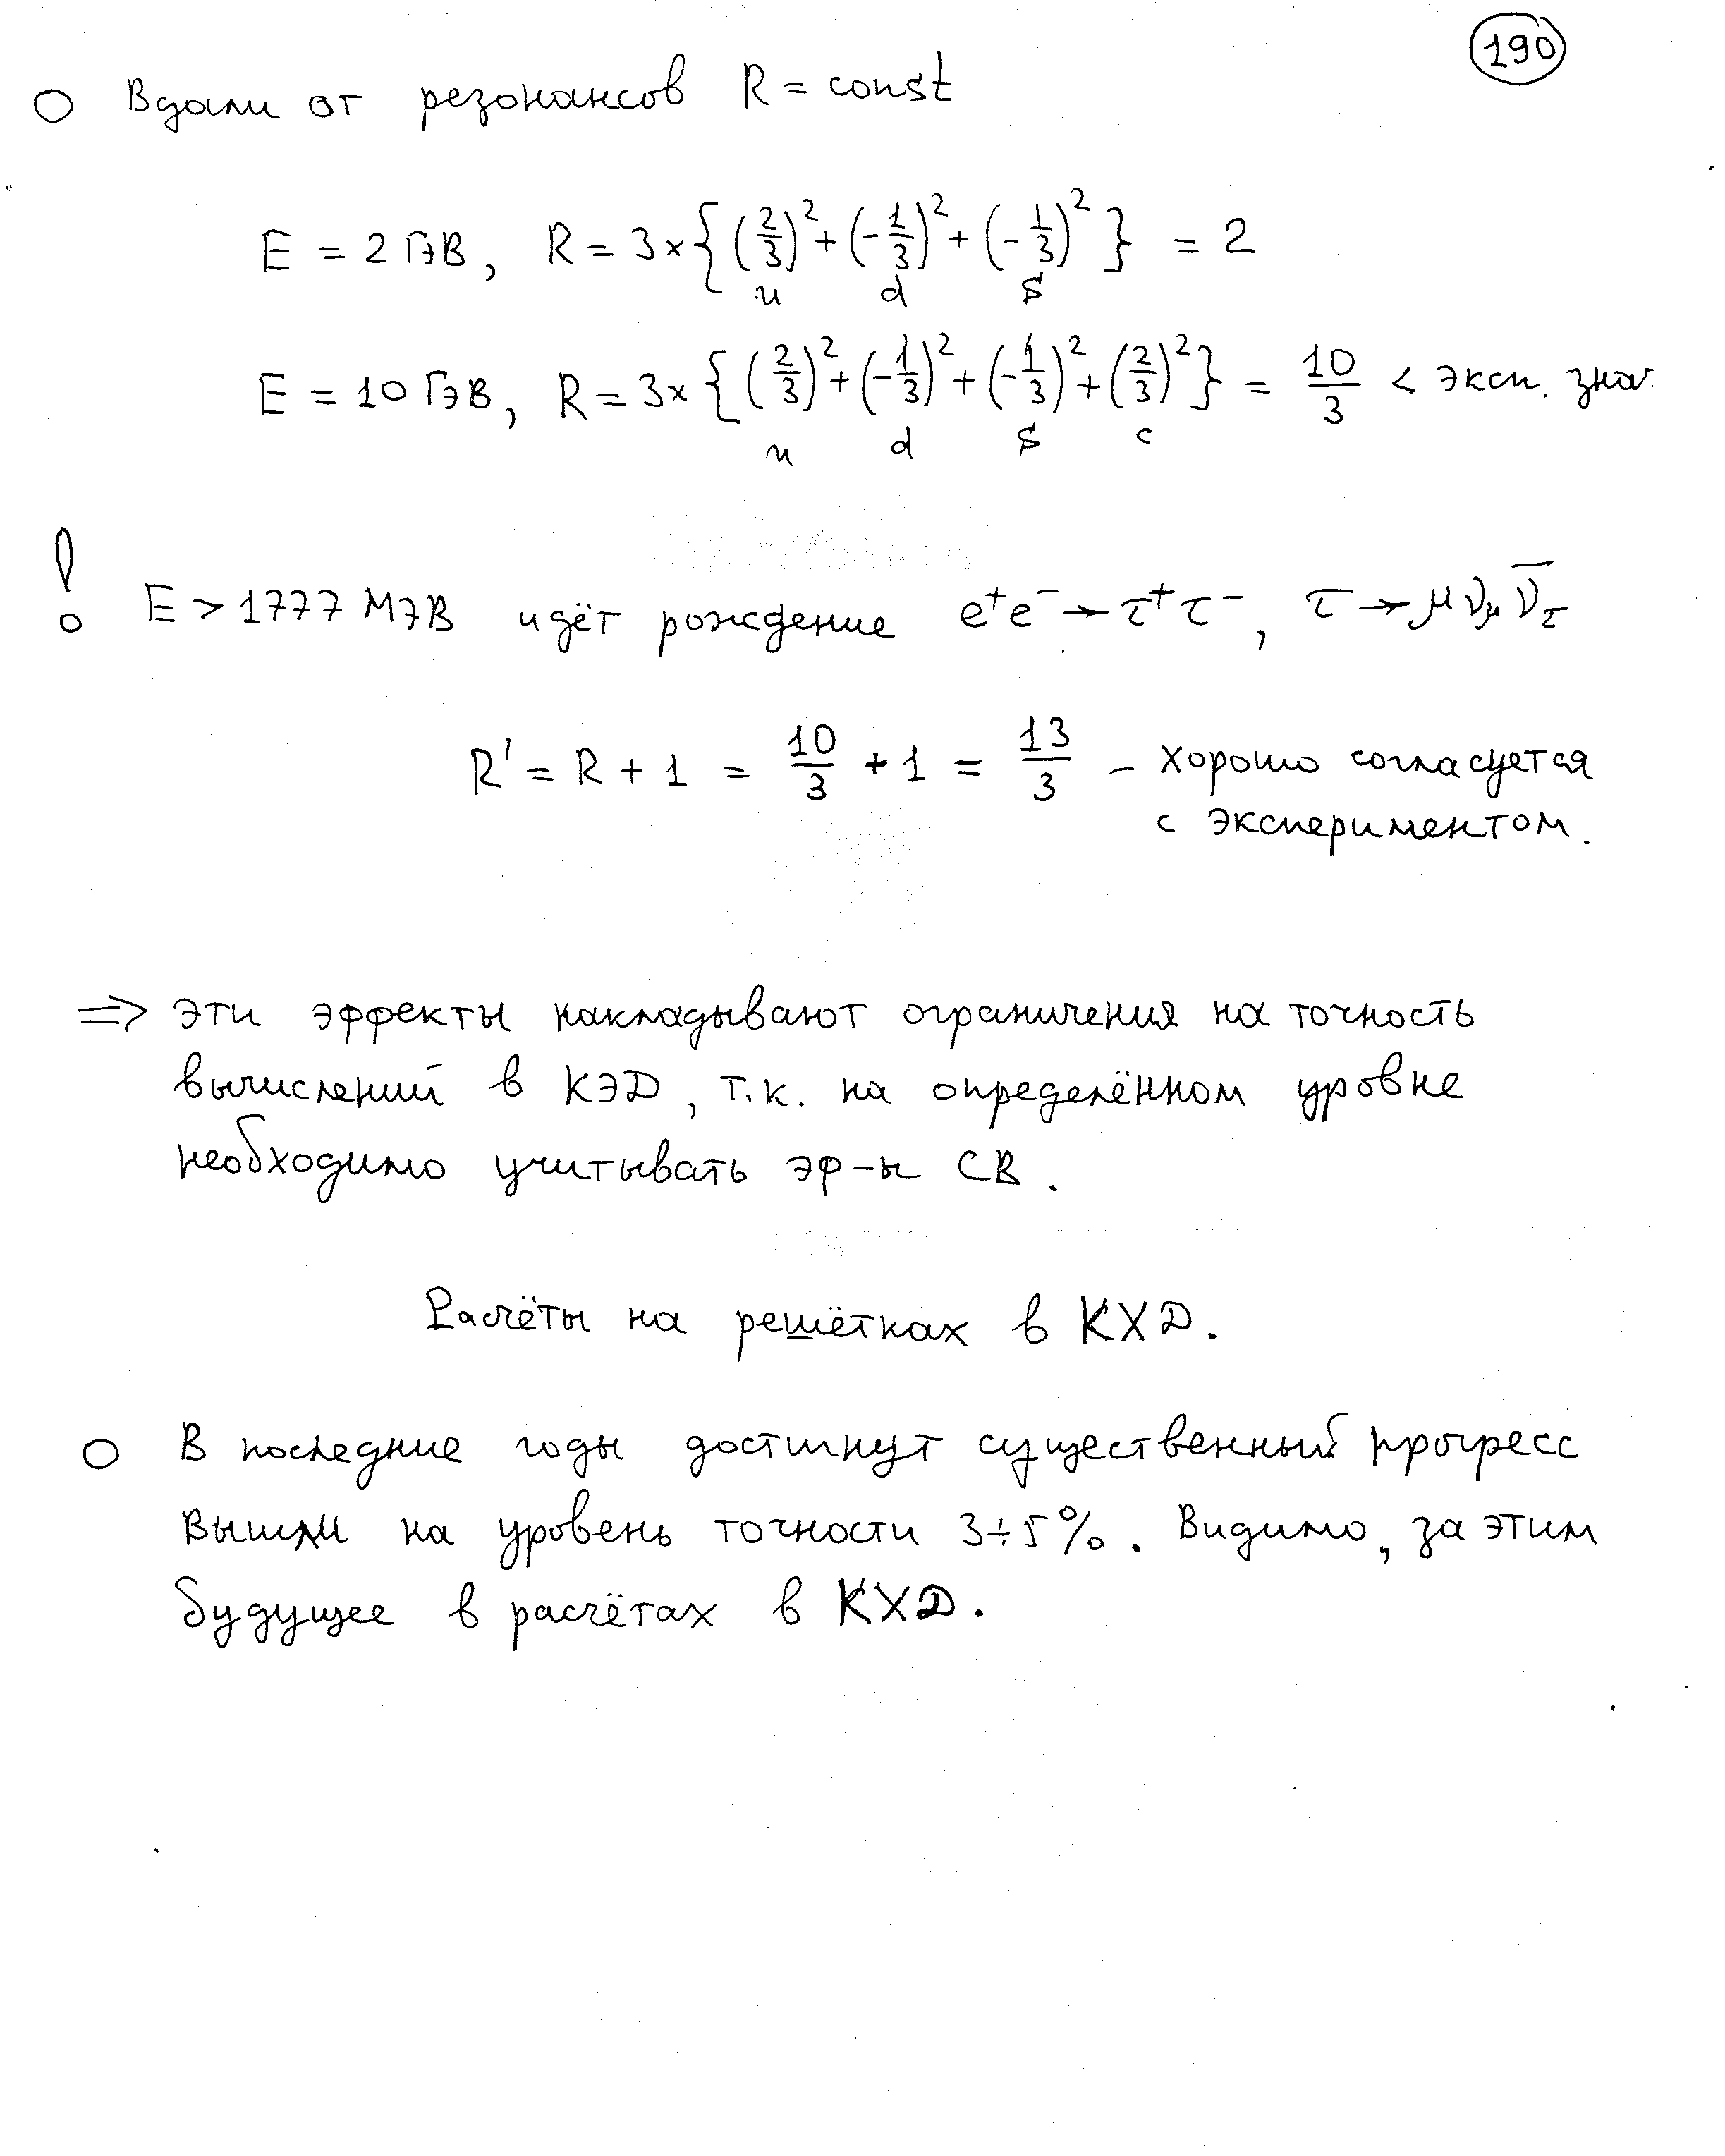 190
○ Вдали от резонансов R = const
E = 2 ГэВ, R = 3 × {(2/3)² + (-1/3)² + (-1/3)²} = 2
u d s
E = 10 ГэВ, R = 3 × {(2/3)² + (-1/3)² + (-1/3)² + (2/3)²} = 10/3 < эксп. знач
u d s c
! E > 1777 МэВ идёт рождение e⁺e⁻ → τ⁺τ⁻, τ → μ ν_μ ν̄_τ
R' = R + 1 = 10/3 + 1 = 13/3 – хорошо согласуется
с экспериментом.
⇒ эти эффекты накладывают ограничения на точность
вычислений в КЭД, т.к. на определённом уровне
необходимо учитывать эф-ы СВ.
Расчёты на решётках в КХД.
○ В последние годы достигнут существенный прогресс
вышли на уровень точности 3÷5%. Видимо, за этим
будущее в расчётах в КХД.